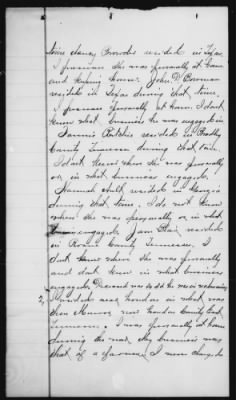 Nancy Crowder resided in Texas
I presume she was generally at home
and keeping house. John W. Bowman
resided in Texas during that time.
I presume generally at home. I don't
know what business he was engaged in
resided in Bradley
County Tennessee during that time
I don't know where she was generally
or in what business engaged.
Hannah Ault resided in Georgia
during that time. I do not know
where she was generally or in what
engaged. Jane Blair resided
in Roane County Tennessee. I
don't know where she was generally
and don't know in what business
engaged.
2, I resided near Loudon in what was
then Monroe now Loudon County East
Tennessee. I was generally at home
during the war. My business was
that of a farmer. I never changed